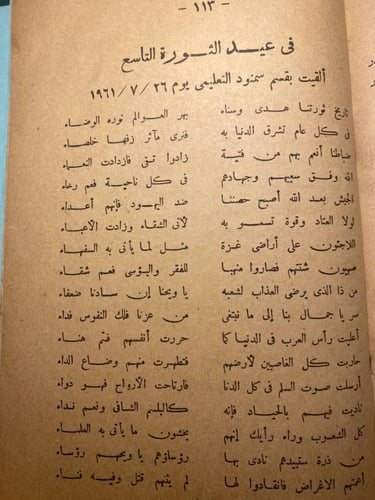 — ١١٣ —
فى عيد الثورة التاسع
ألقيت بقسم سمنود التعليمى يوم ٢٦ / ٧ / ١٩٦١
تاريخ ثورتنا هدى وسناء بهر العوالم نوره الوضاء
فى كل عام تشرق الدنيا به فترى مآثر زفها خلصاء
ضباطنا أنعم بهم من فتية زادوا تقى فازدادت النعماء
الله وفق سعيهم وجهادهم فى كل ناحية فعم رخاء
الجيش بعد الله أصبح حصننا ضد اليهود فإنهم أعداء
لولا العتاد وقوة تسمو به لآتى الشقاء وزادت الأعباء
اللاجئون على أراضى غزة مثل لما يأتى به السفهاء
صهيون شتتهم فصاروا منهبا للفقر والبؤسى فعم شقاء
من ذا الذى يرضى العذاب لشعبه يا ويحنا إن سادنا ضعفاء
سر يا جمال بنا إلى ما نبتغى من عزنا فلك النفوس فداء
أعليت رأس العرب فى الدنيا كما حررت أنفسهم فتم هناء
حاربت كل الغاصبين لأرضهم فتطهرت منهم وضاع الداء
أرسلت صوت السلم فى كل الدنا فارتاحت الارواح فهو دواء
ناديت فيهم بالحياد فإنه كالبلسم الشافى ونعم نداء
كل الشعوب وراء رأيك إنهم يخشون ما يأتى به العلماء
من ذرة ستبيدهم نادى بها رؤساؤهم يا ويحهم رؤساء
أعمتهم الاغراض فانقادوا لها لم ينهم قتل وفيه فناء